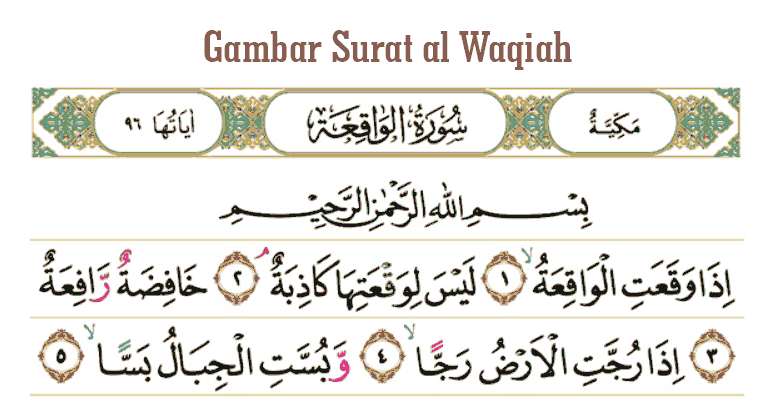 Gambar Surat al Waqiah
مَكِّيَّةٌ سُوْرَةُ الْوَاقِعَةِ اٰيَاتُهَا ٩٦
بِسْمِ اللهِ الرَّحْمٰنِ الرَّحِيْمِ
اِذَا وَقَعَتِ الْوَاقِعَةُۙ ١ لَيْسَ لِوَقْعَتِهَا كَاذِبَةٌۘ ٢ خَافِضَةٌ رَّافِعَةٌ
٣ اِذَا رُجَّتِ الْاَرْضُ رَجًّاۙ ٤ وَّبُسَّتِ الْجِبَالُ بَسًّاۙ ٥